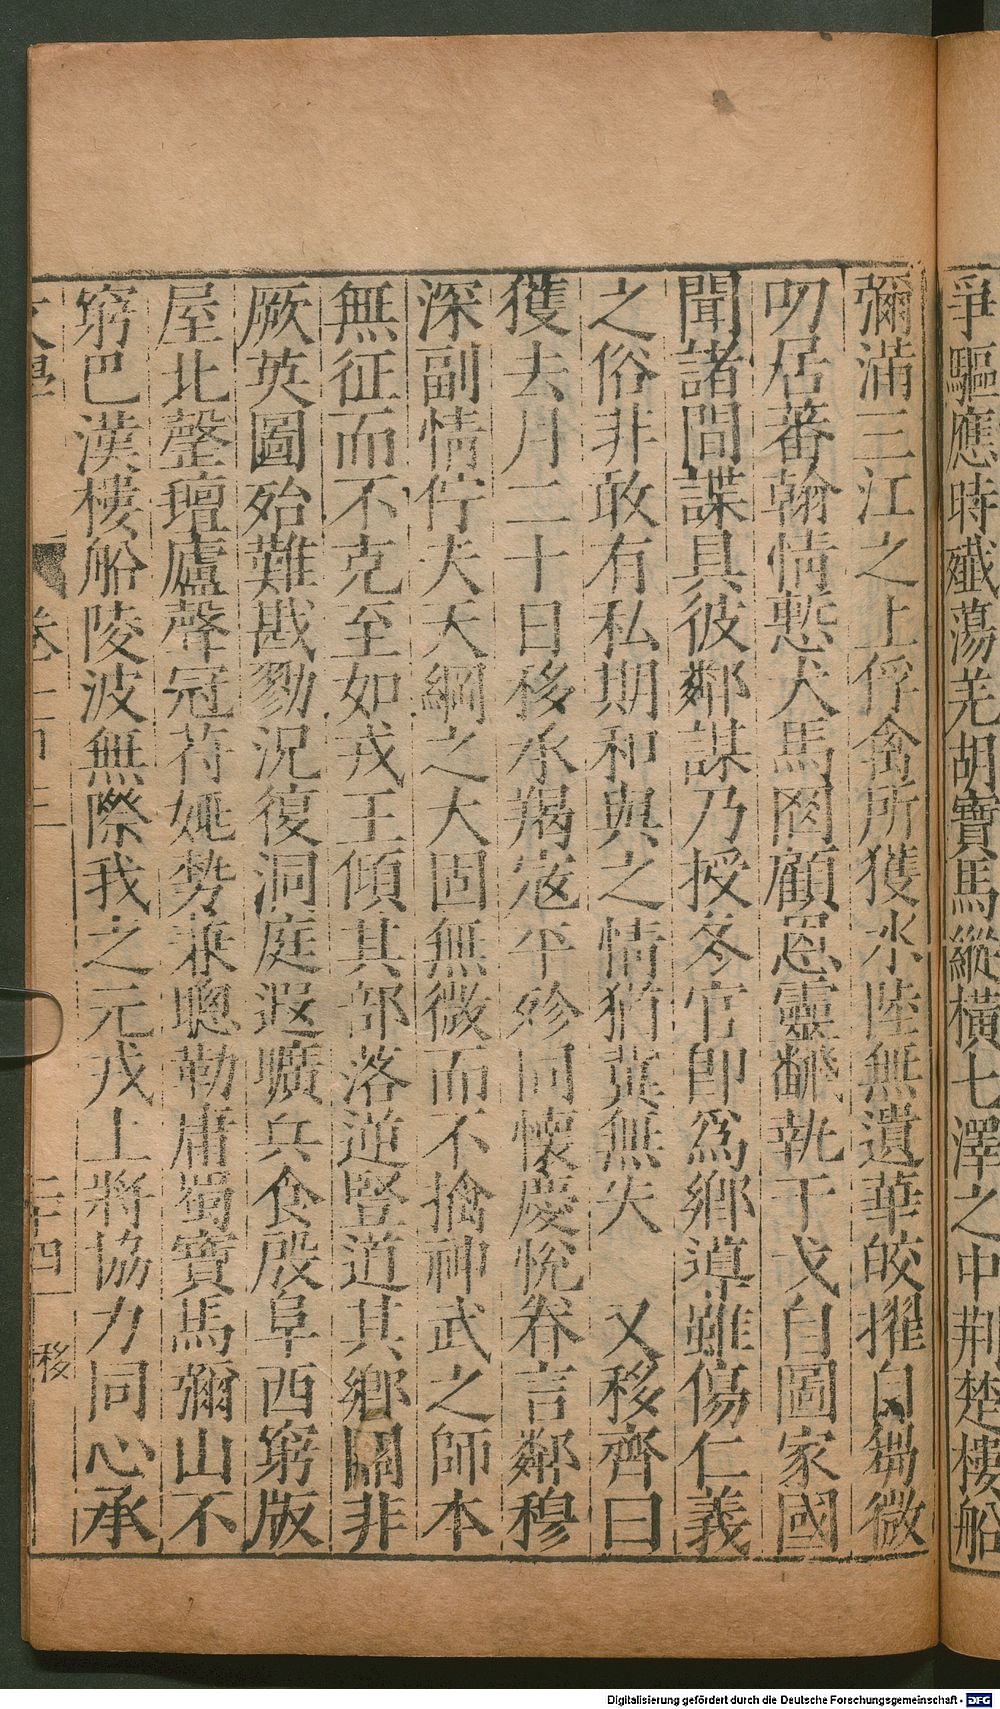 爭驅應時殲蕩羌胡寶馬縱橫七澤之中荆楚樓船
彌滿三江之上俘禽所獲水陸無遺華皎擢自芻微
叨居蕃翰情慙犬馬罔顧恩靈翻執干戈自圖家國
聞諸間諜具彼鄰謀乃授冬官即爲鄉導雖傷仁義
之俗非敢有私期和與之情猶冀無失 又移齊曰
獲去月二十日移承羯寇平殄同懷慶悅眷言鄰穆
深副情佇夫天綱之大固無微而不擒神武之師本
無征而不克至如戎王傾其部落逆豎道其鄉關非
厥英圖殆難戡勦況復洞庭遐曠兵食殷阜西窮版
屋北罄壇廬聲冠苻姚勢兼聰勒庸蜀寶馬彌山不
窮巴漢樓船陵波無際我之元戎上將協力同心承
卷二百三 二十四 移
Digitalisierung gefördert durch die Deutsche Forschungsgemeinschaft - DFG